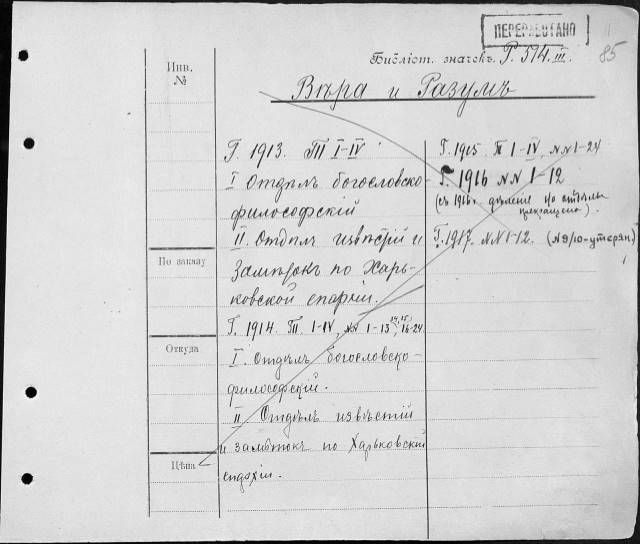 ПЕРЕРАБОТАНО
85
Библіот. значекъ Р. 514. III.
Вѣра и Разумъ
Инв.
№
Г. 1913. ТТ I-IV
I Отдѣлъ богословско-
философскій
II. Отдѣлъ извѣстій и
Замѣтокъ по Харь-
ковской епархіи.
Г. 1914. ТТ. I-IV, №№ 1-13, 14, 15, 16-24
I. Отдѣлъ богословско-
философскій.
II Отдѣлъ извѣстій
и замѣтокъ по Харьковской
епархіи.
Г. 1915. Т I-IV, №№ 1-24
Г. 1916 №№ 1-12
(съ 1916 г. дѣленіе на отдѣлы
прекращено).
Г. 1917. №№ 1-12. (№ 9/10-утерян)
По заказу
Откуда
Цѣна